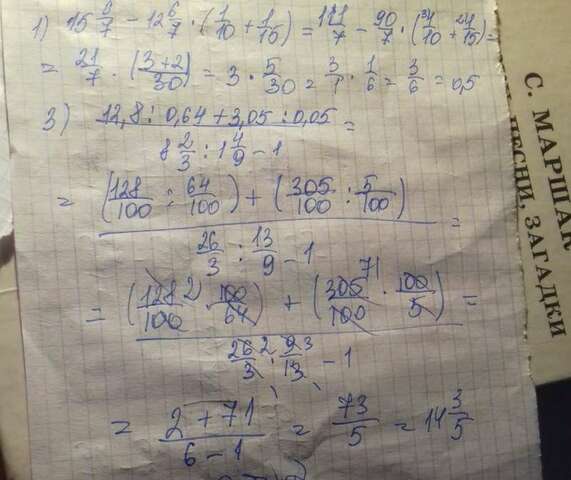 1) 15 6/7 - 12 6/7 · (1/10 + 1/15) = 111/7 - 90/7 · (3\1/10 + 2\1/15) =
= 21/7 · (3+2/30) = 3 · 5/30 = 3/1 · 1/6 = 3/6 = 0,5
3) 12,8 : 0,64 + 3,05 : 0,05 =
8 2/3 : 1 4/9 - 1
= (128/100 : 64/100) + (305/100 : 5/100) =
26/3 : 13/9 - 1
= (128 2/100 · 100/64) + (305 71/100 · 100/5) =
26 2/3 · 9 3/13 - 1
= 2 + 71/6 - 1 = 73/5 = 14 3/5
С. МАРШАК
ПЕСНИ, ЗАГАДКИ